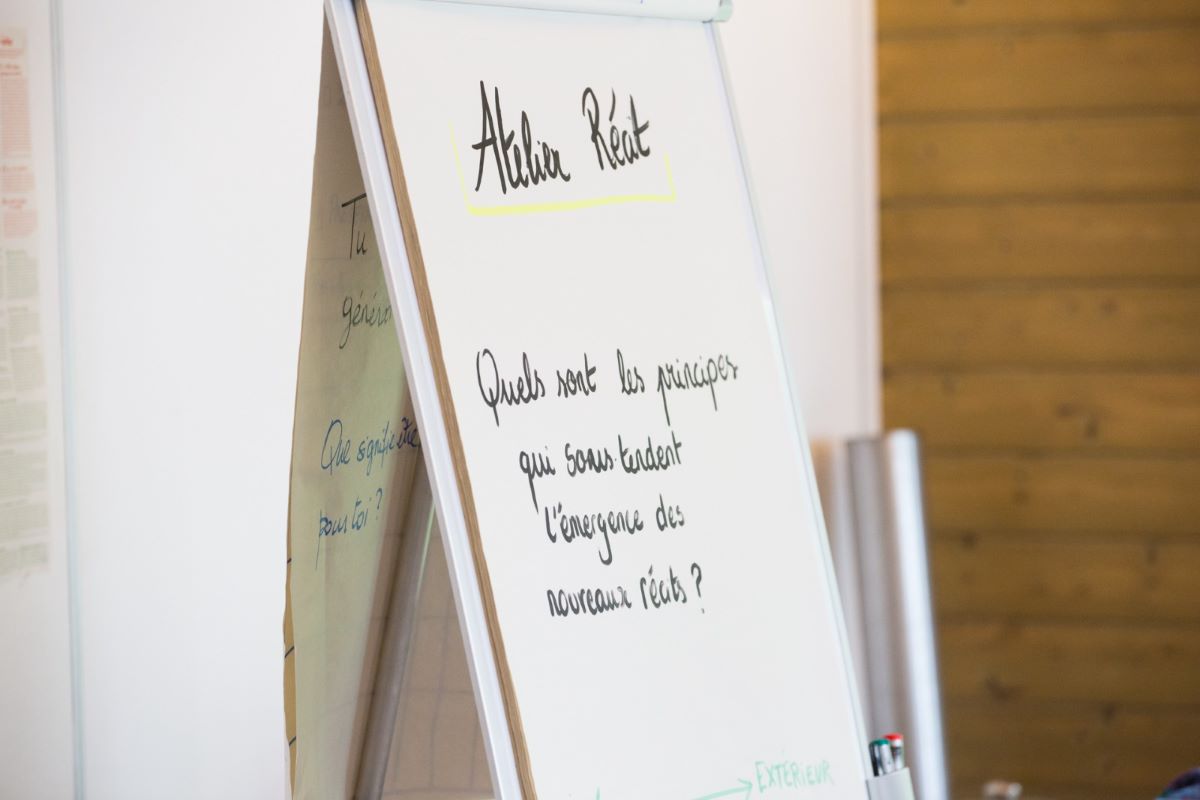 Atelier Récit
Quels sont les principes
qui sous-tendent
l'émergence des
nouveaux récits ?
EXTÉRIEUR
Tu
Que signifie être
pour toi ?